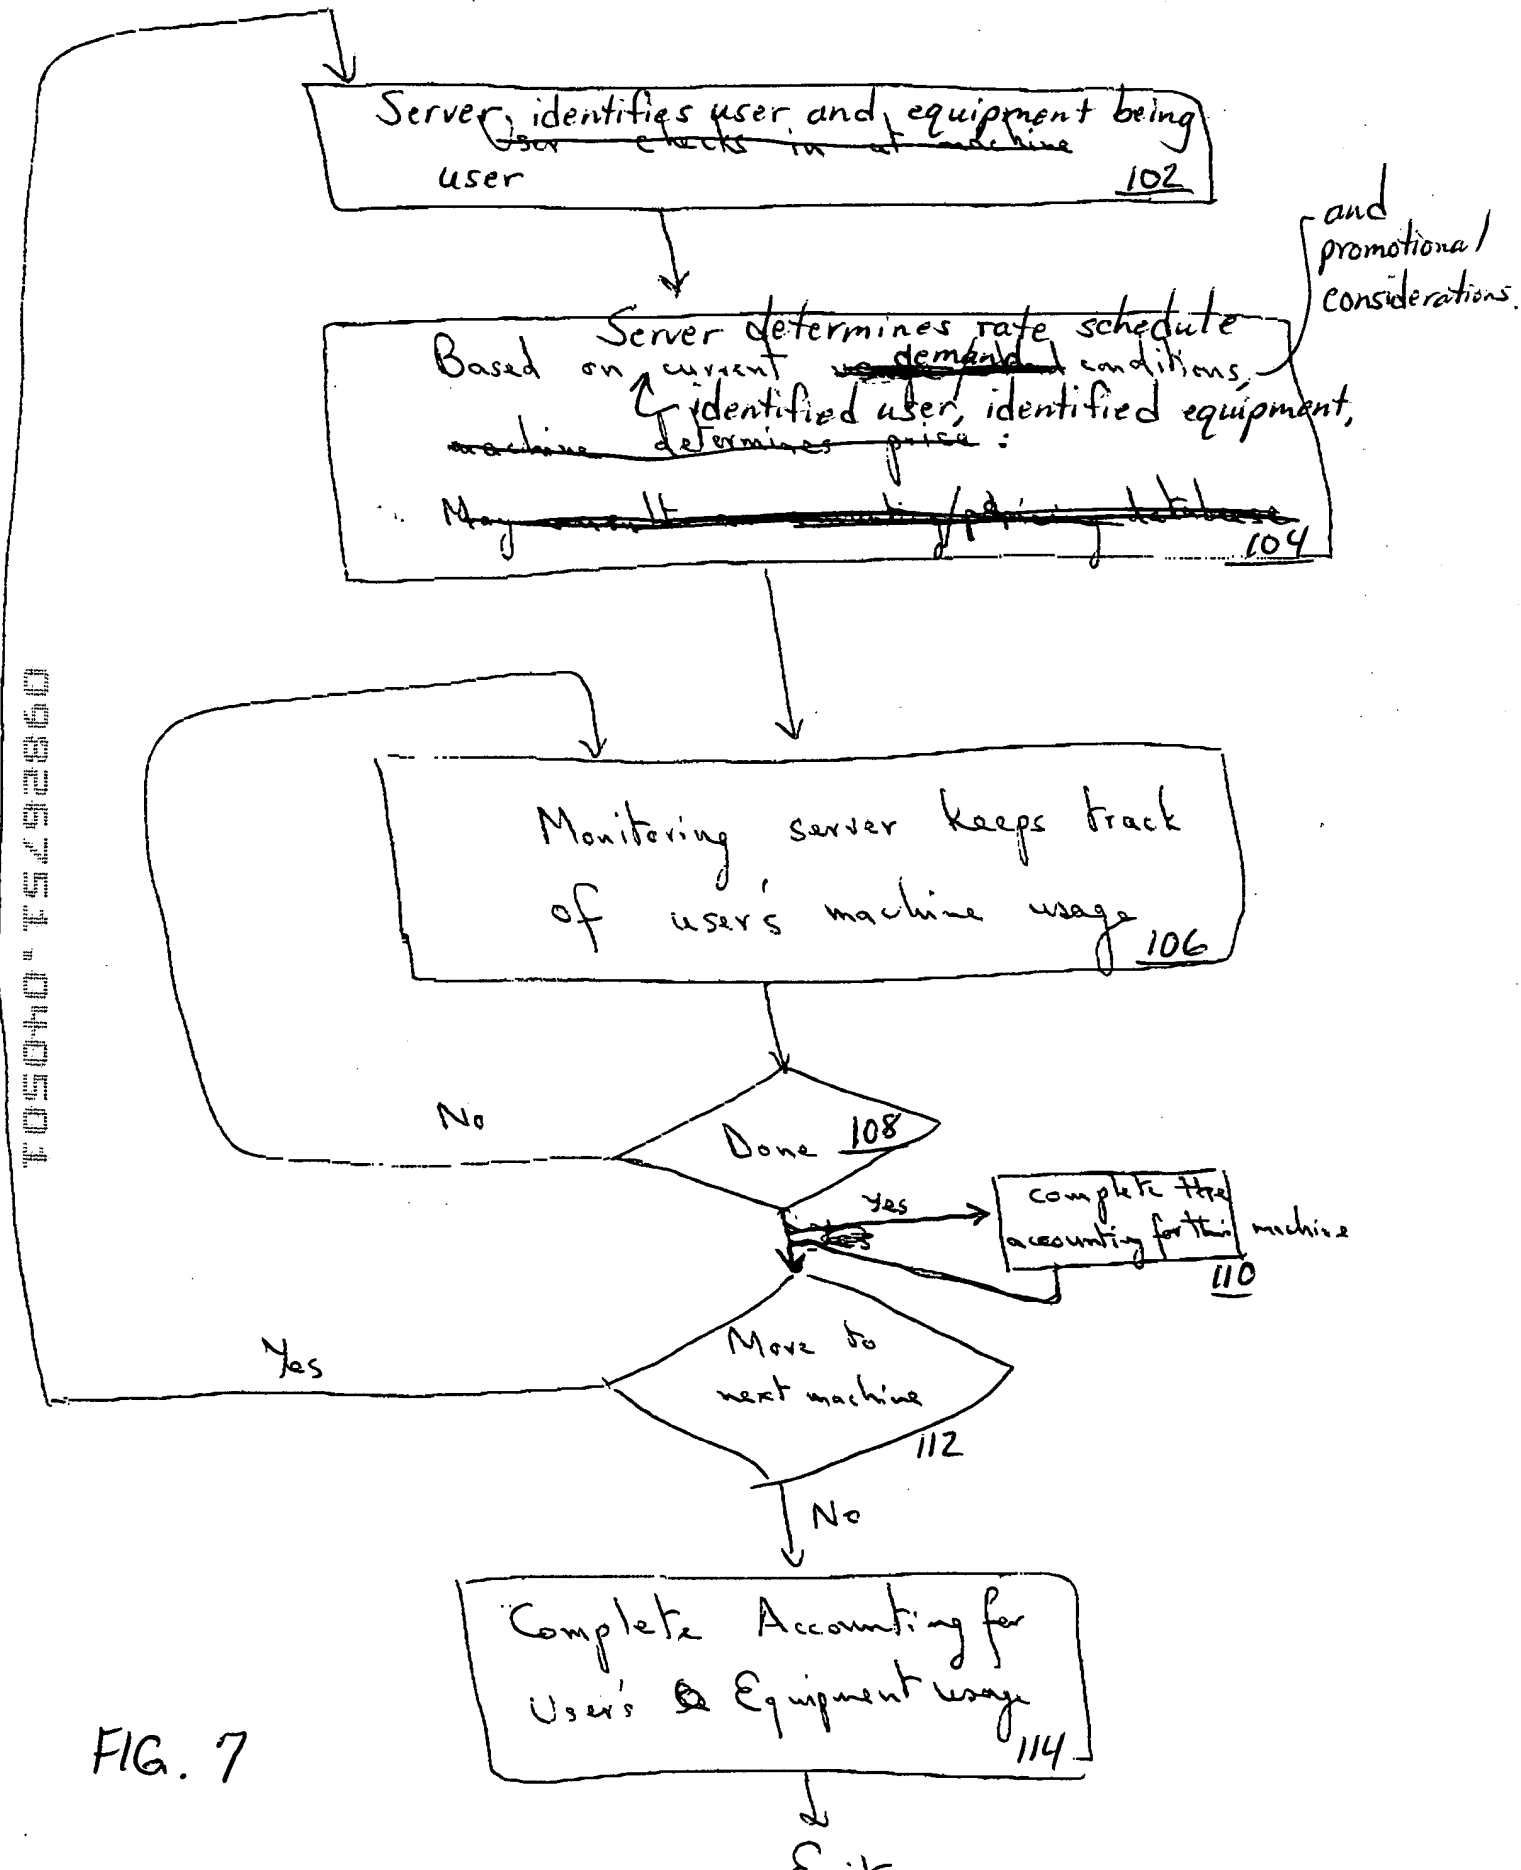 Server identifies user and equipment being
User checks in at machine
user
102
and
promotional
considerations.
Server determines rate schedule
Based on current demand conditions,
identified user, identified equipment,
machine determines price:
May
database
104
Monitoring server keeps track
of user's machine usage
106
No
Done 108
Yes
complete the
accounting for this machine
110
Yes
Move to
next machine
112
No
Complete Accounting for
User's Equipment usage
114
FIG. 7
Exit
09826751.040501